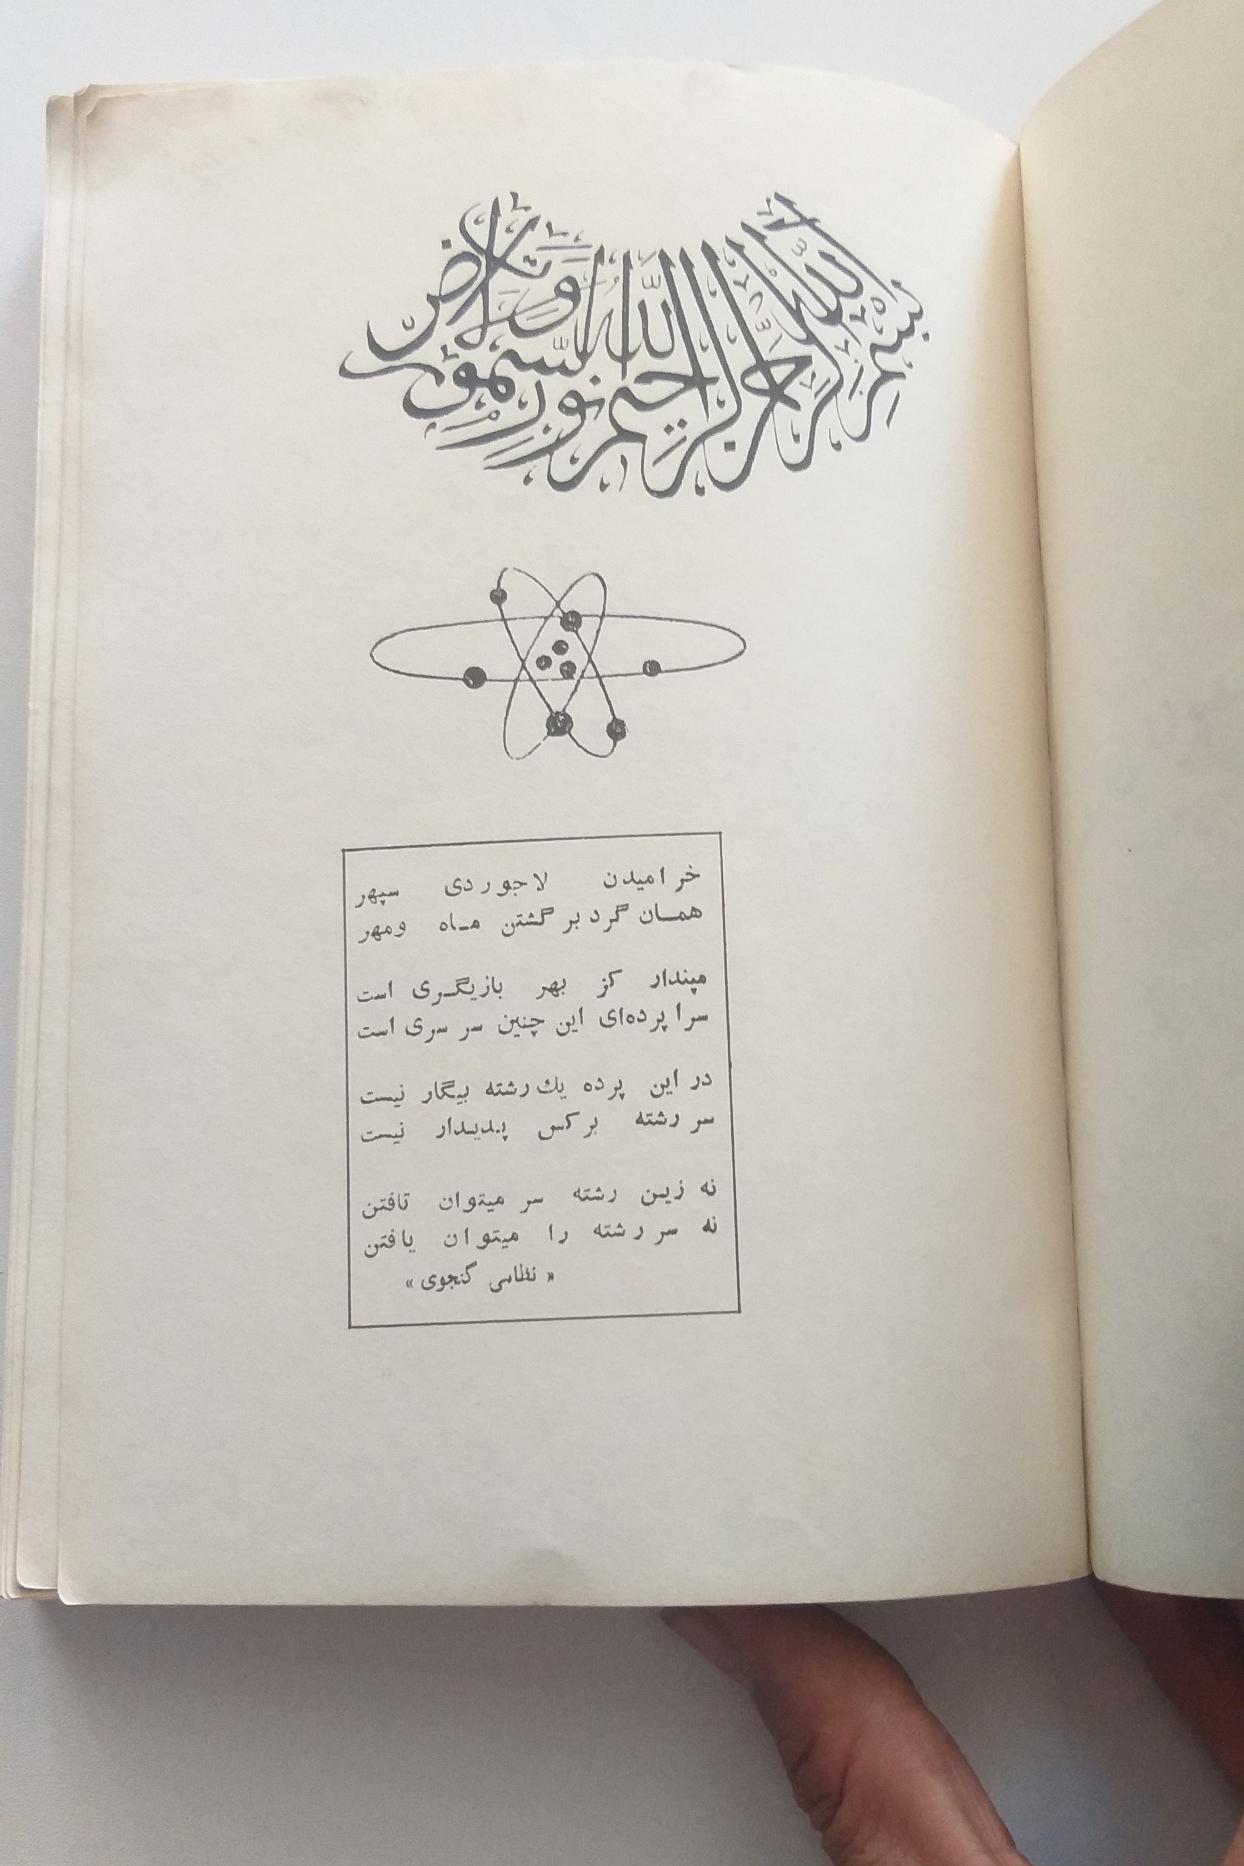 بسم الله الرحمن الرحيم الله نور السموت والارض
خرامیدن لاجوردی سپهر
همان گرد بر گشتن ماه ومهر
مپندار کز بهر بازیگری است
سرا پرده‌ای این چنین سر سری است
در این پرده یك رشته بیگار نیست
سر رشته بر کس پدیدار نیست
نه زین رشته سر میتوان تافتن
نه سر رشته را میتوان یافتن
« نظامی گنجوی »